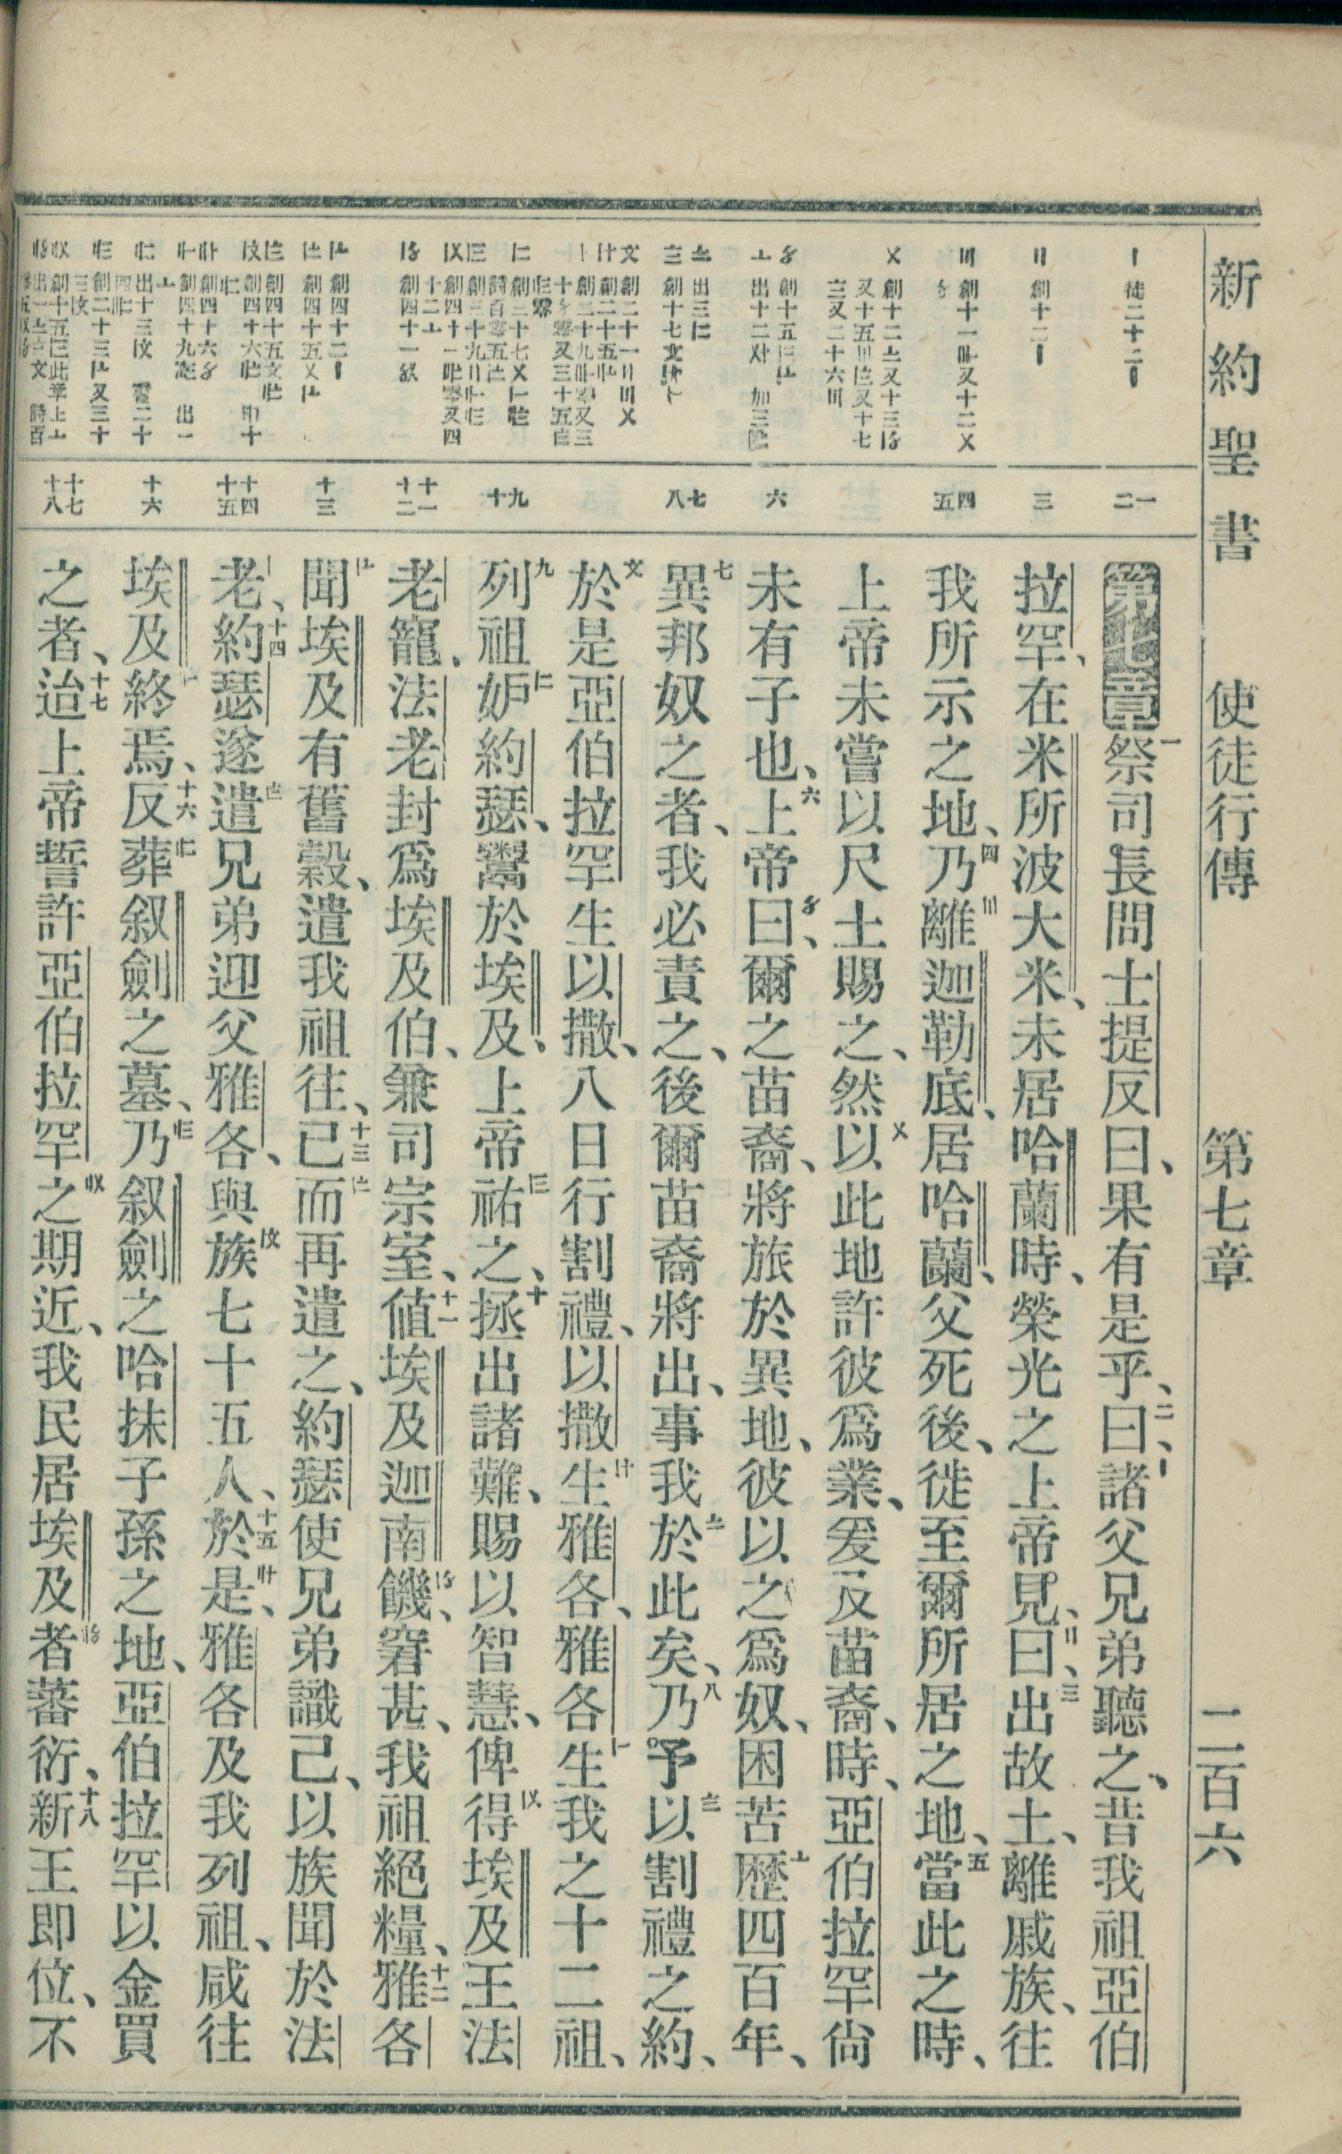 新約聖書 使徒行傳 第七章 二百六
一二
三
四五
六
七八
九十
十一十二
十三
十四十五
十六
十七十八
第七章一祭司長問士提反曰、果有是乎、二曰、諸父兄弟聽之、昔我祖亞伯
拉罕、在米所波大米、未居哈蘭時、榮光之上帝見、曰、三出故土、離戚族、往
我所示之地、四乃離迦勒底、居哈蘭、父死後、徙至爾所居之地、五當此之時、
上帝未嘗以尺土賜之、然以此地許彼爲業、爰及苗裔、時、亞伯拉罕尙
未有子也、六上帝曰、爾之苗裔、將旅於異地、彼以之爲奴、困苦歷四百年、
七異邦奴之者、我必責之、後爾苗裔將出、事我於此矣、八乃予以割禮之約、
於是亞伯拉罕生以撒、八日行割禮、以撒生雅各、雅各生我之十二祖、
九列祖妒約瑟、鬻於埃及、上帝祐之、十拯出諸難、賜以智慧、俾得埃及王法
老寵、法老封爲埃及伯、兼司宗室、十一值埃及迦南饑、窘甚、我祖絕糧、十二雅各
聞埃及有舊穀、遣我祖往、十三已而再遣之、約瑟使兄弟識己、以族聞於法
老、十四約瑟遂遣兄弟迎父雅各、與族七十五人、十五於是、雅各及我列祖、咸往
埃及終焉、十六反葬叙劍之墓、乃叙劍之哈抹子孫之地、亞伯拉罕以金買
之者、十七迨上帝誓許亞伯拉罕之期近、我民居埃及者蕃衍、十八新王卽位、不